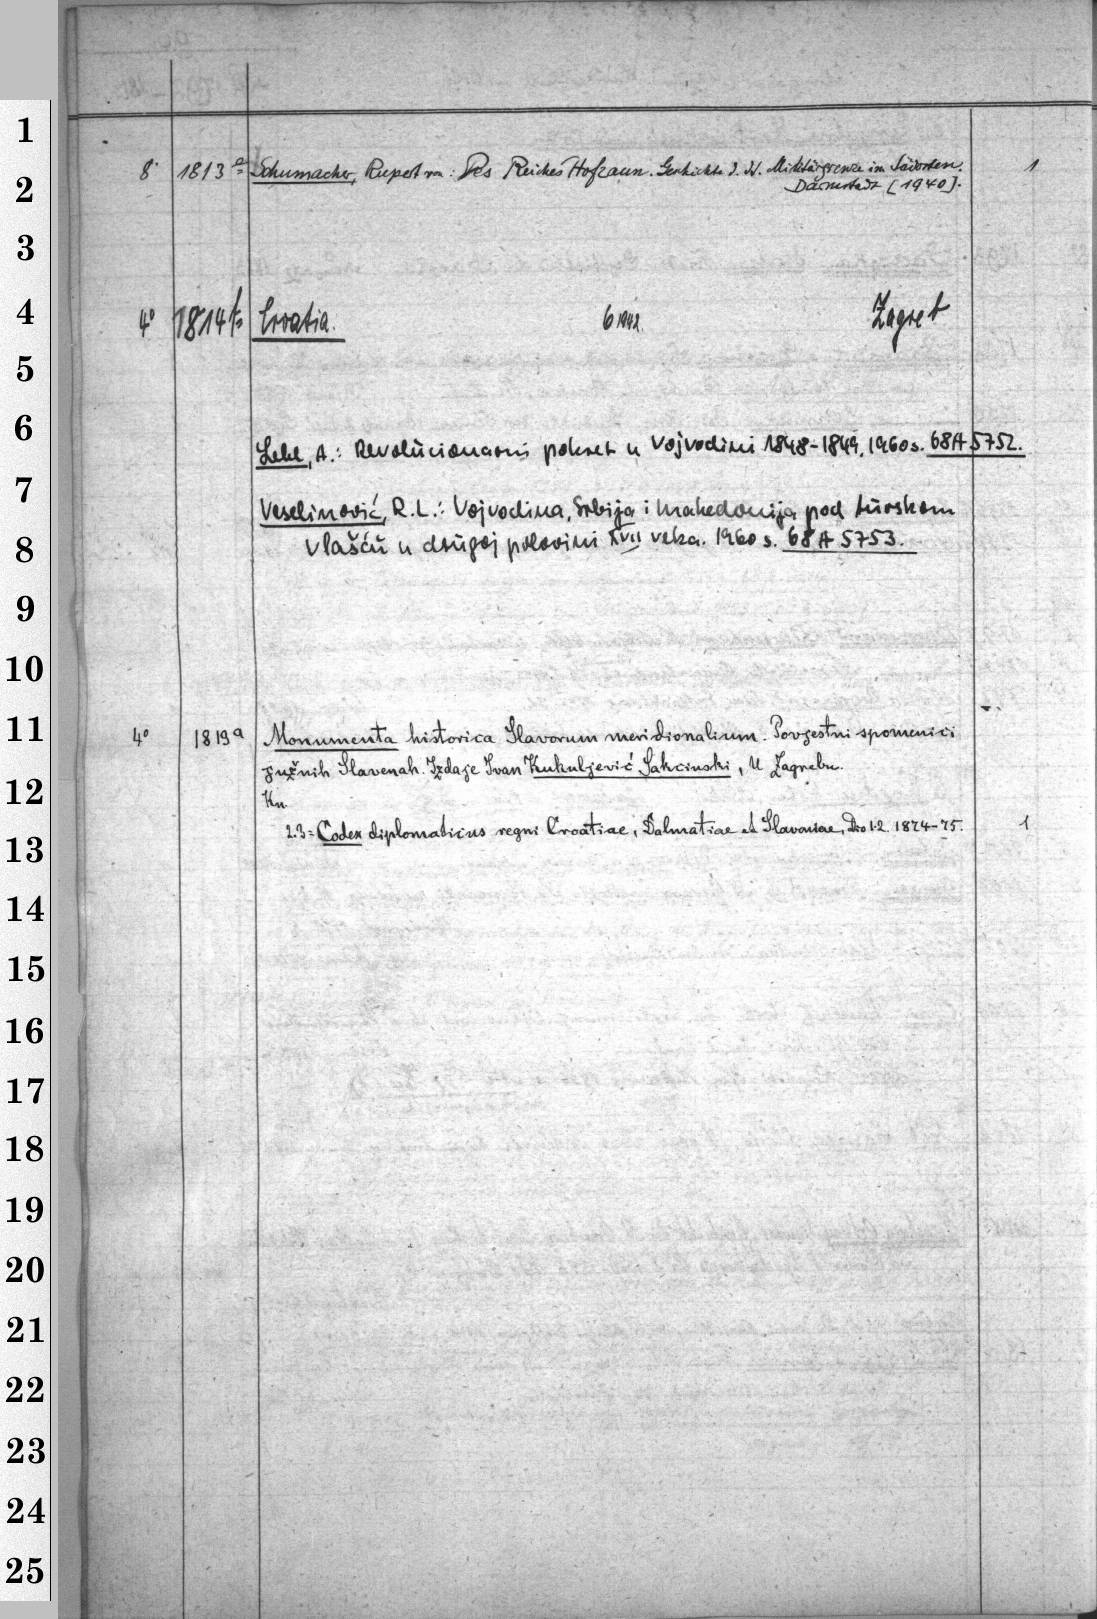 1
2
3
4
5
6
7
8
9
10
11
12
13
14
15
16
17
18
19
20
21
22
23
24
25
8° 1813 a Schumacher, Rupert von: Des Reiches Hofzaun. Geschichte d. dt. Militärgrenze im Südosten. 1
Darmstadt [1940].
4° 1814 Croatia. 6 1942. Zagreb
Lebl, A.: Revolucionarni pokret u Vojvodini 1848-1849. 1960 s. 68 A 5752.
Veselinović, R. L.: Vojvodina, Srbija i Makedonija pod turskom
vlašću u drugoj polovini XVII veka. 1960 s. 68 A 5753.
4° 1819 a Monumenta historica Slavorum meridionalium. Povjestni spomenici
južnih Slavenah. Izdaje Ivan Kukuljević Sakcinski, U Zagrebu.
Kn.
2.3 = Codex diplomaticus regni Croatiae, Dalmatiae et Slavoniae, Dio 1-2. 1874-75. 1